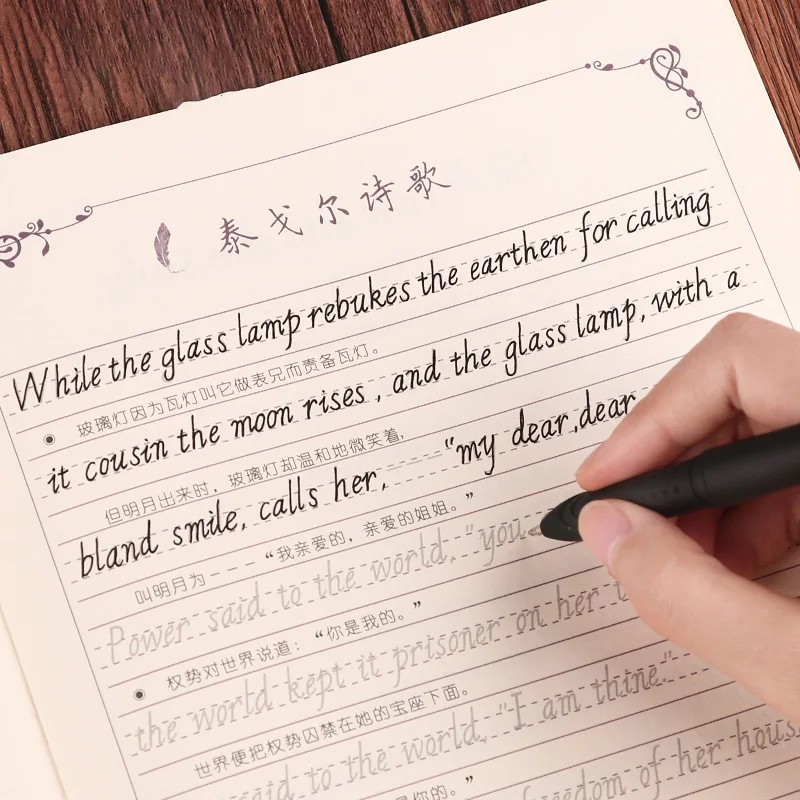 泰戈尔诗歌
While the glass lamp rebukes the earthen for calling
玻璃灯因为瓦灯叫它做表兄而责备瓦灯。
it cousin the moon rises , and the glass lamp, with a
但明月出来时，玻璃灯却温和地微笑着,
bland smile, calls her, ---- "my dear, dear
叫明月为---“我亲爱的，亲爱的姐姐。”
Power said to the world, "you
权势对世界说道：“你是我的。”
the world kept it prisoner on her
世界便把权势囚禁在她的宝座下面。
said to the world, "I am thine."
是你的。”
of her